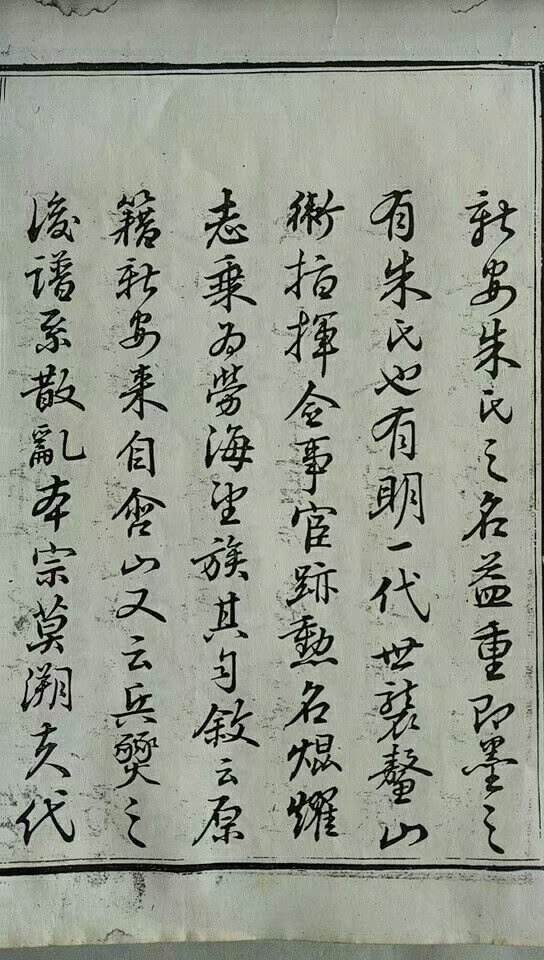 新安朱氏之名益重即墨之
有朱氏也有明一代世襲鰲山
衛指揮僉事宦跡勳名焜耀
志乘为勞海望族其自敘云原
籍新安来自含山又云兵燹之
後譜系散亂本宗莫溯夫代